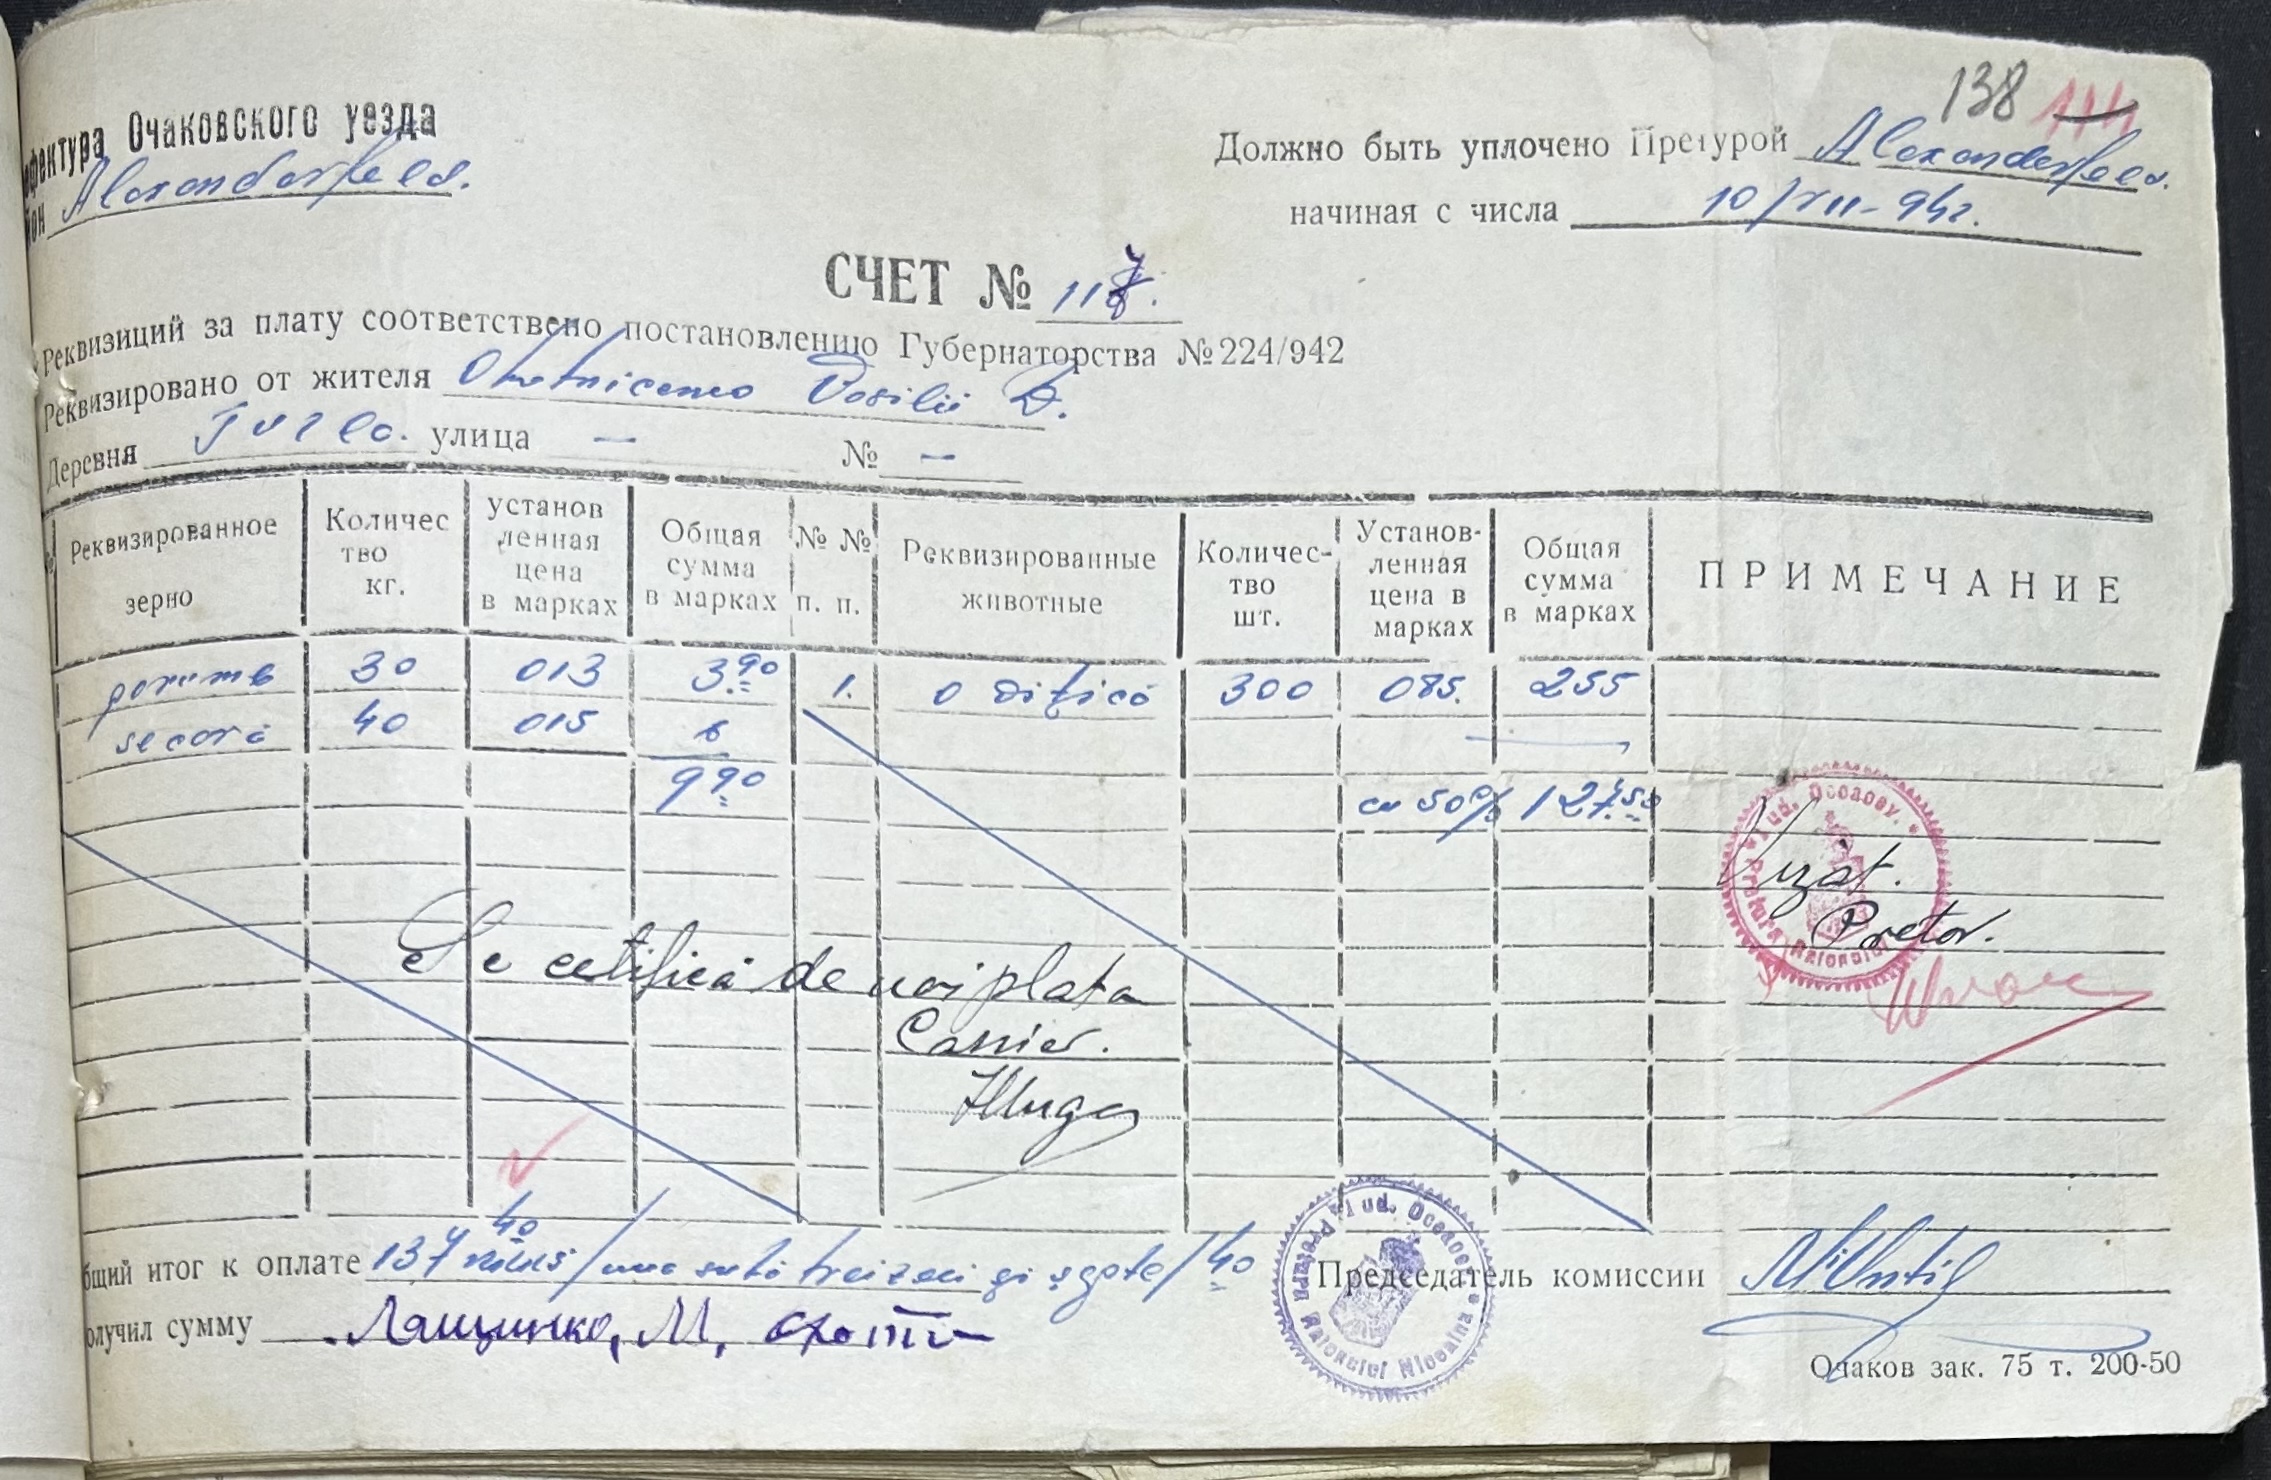 138 114
ефектура Очаковского уезда
йон Alexanderfeld.
Должно быть уплочено Претурой Alexanderfeld.
начиная с числа 10/VII-942.
СЧЕТ № 117.
Реквизиций за плату соответствено постановлению Губернаторства №224/942
Реквизировано от жителя Ohotnicenco Vasilii D.
Деревня улица — № —
Реквизированное зерно Количес тво кг. установ ленная цена в марках Общая сумма в марках № № п. п. Реквизированные животные Количес- тво шт. Установ- ленная цена в марках Общая сумма в марках ПРИМЕЧАНИЕ
30 013 3.90 1. o vițică 300 085. 255
secară 40 015 6
9 90 cu 50% 127.50
Vizat.
Pretor.
Se certifică de noi plata
Casier.
бщий итог к оплате 137 40 /una sută treizeci și șapte/ 40 Председатель комиссии
олучил сумму Лящинко, М,
Pretura Raionului Nicoaina * Jud. Oceacov. *
Очаков зак. 75 т. 200-50